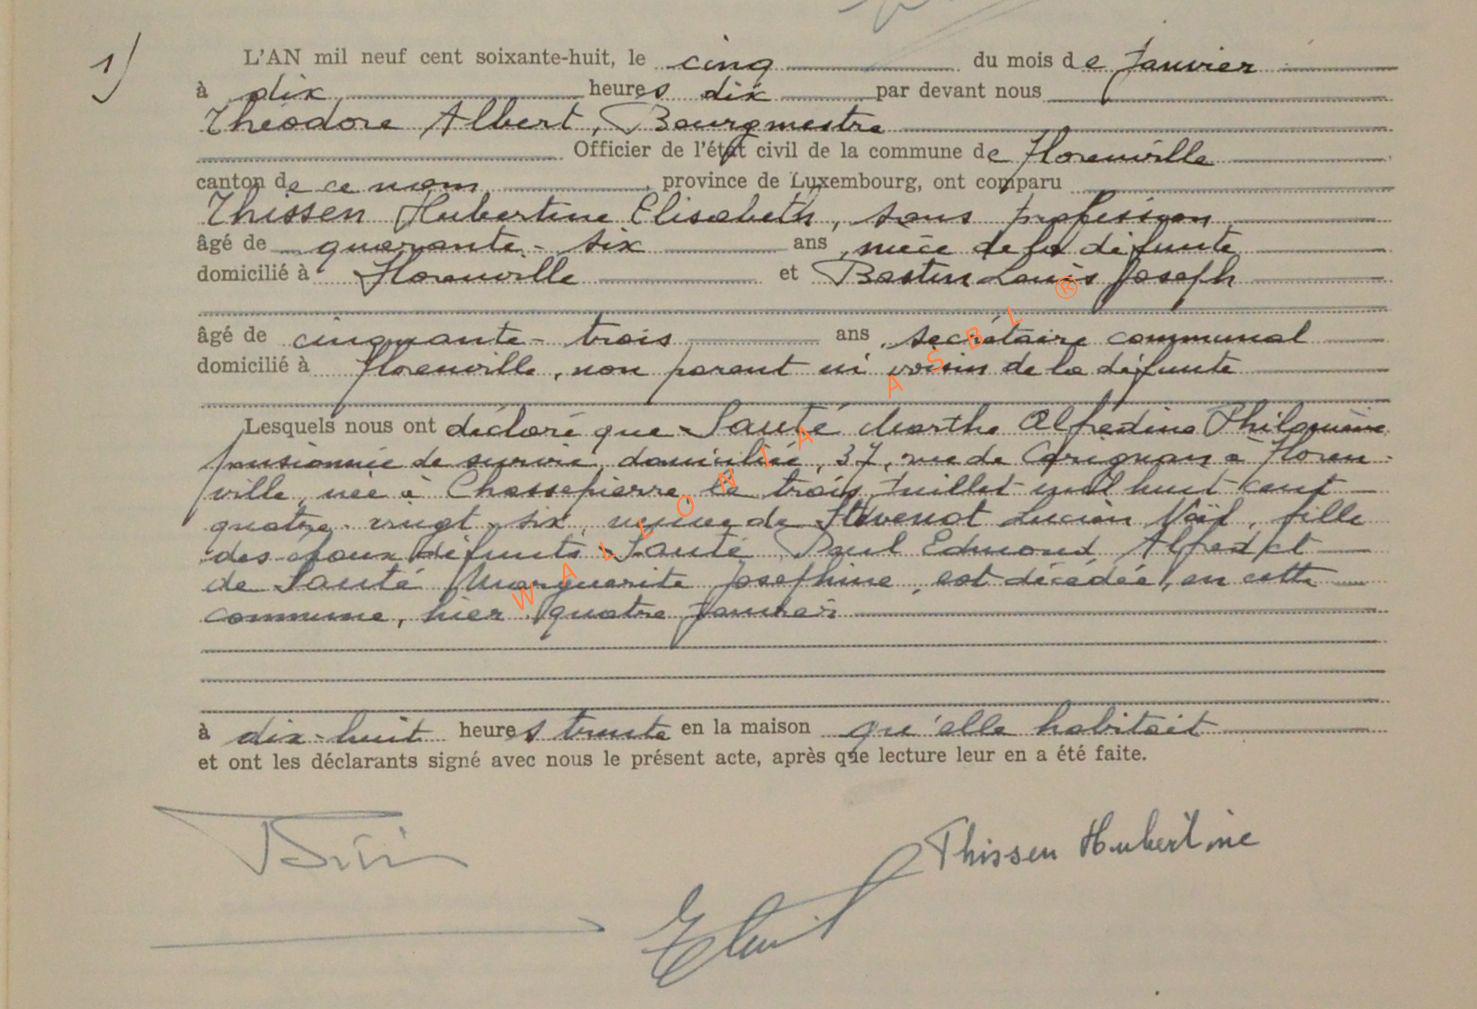 1)
L'AN mil neuf cent soixante-huit, le cinq du mois de Janvier
à dix heures dix par devant nous
Théodore Albert, Bourgmestre
Officier de l'état civil de la commune de Florenville
canton de ce nom, province de Luxembourg, ont comparu
Thissen Hubertine Elisabeth, sans profession
âgé de quarante-six ans, nièce de la défunte
domicilié à Florenville et Bastin Louis Joseph
âgé de cinquante-trois ans, secrétaire communal
domicilié à Florenville, non parent ni voisin de la défunte
Lesquels nous ont déclaré que Santé Marthe Alfrédine Philomène
pensionnée de survie, domiciliée, 37, rue de Carignan à Floren-
ville, née à Chassepierre, le trois Juillet mil huit cent
quatre-vingt-six, veuve de Lucien Noël, fille
des époux défunts Santé Paul Edmond Alfred et
de Santé Marguerite Joséphine, est décédée, en cette
commune, hier quatre janvier
à dix-huit heures trente en la maison qu'elle habitait
et ont les déclarants signé avec nous le présent acte, après que lecture leur en a été faite.
Thissen Hubertine
WALLONIA ASBL ®